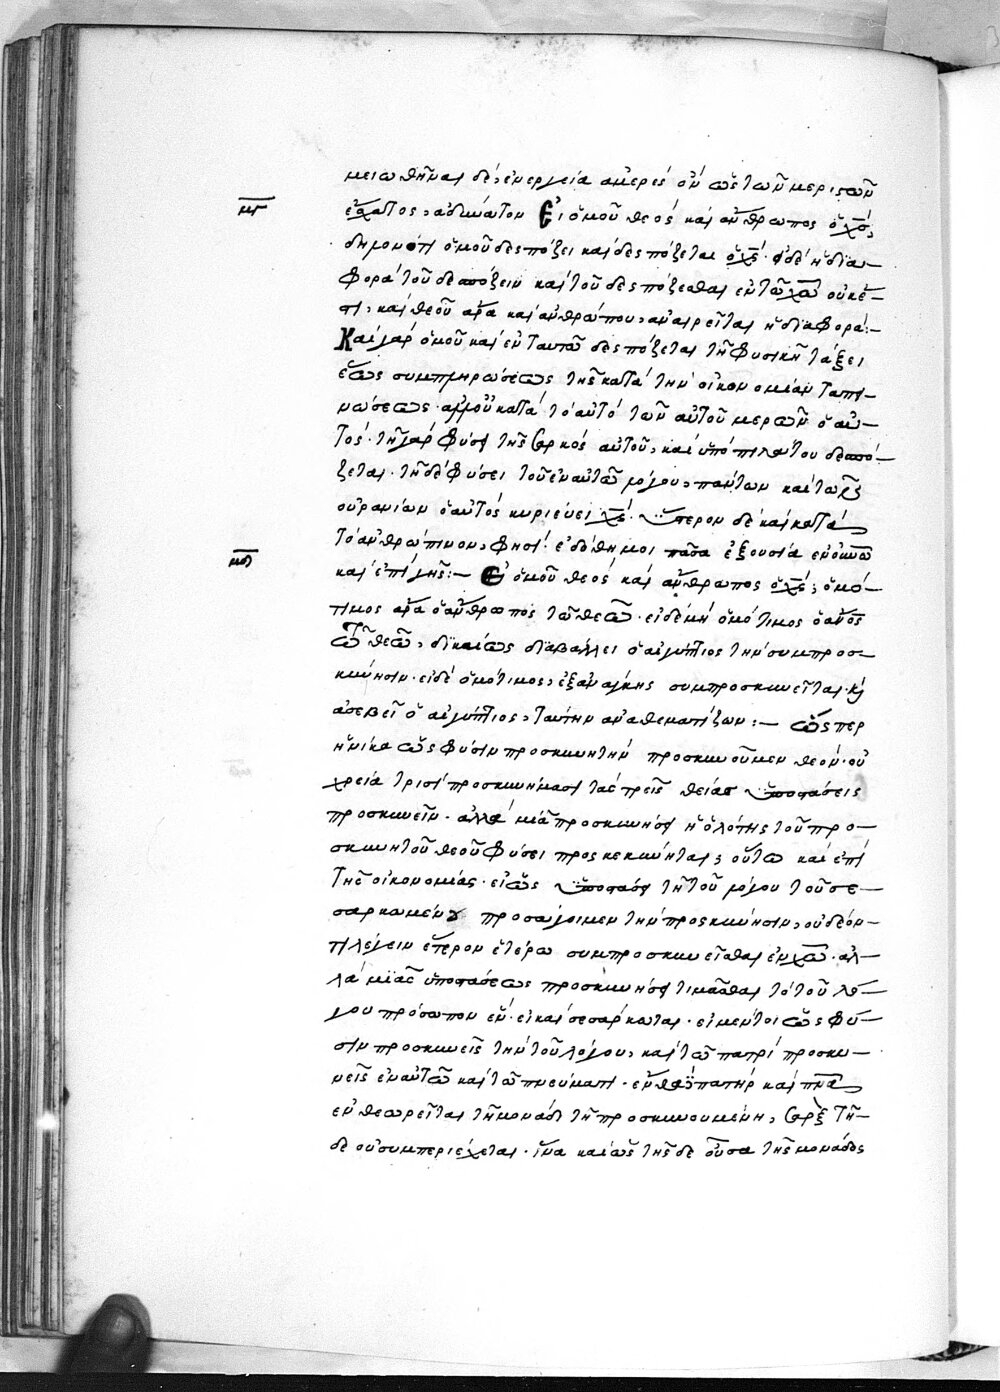 μειωθῆναι δὲ, ἐνεργεία ἀμερὲς ὂν ὡς τῶν μεριστῶν
μγ
ἕκαστος, ἀδύνατον Εἰ ὁμοῦ θεὸς καὶ ἄνθρωπος ὁ χς,
δηλονότι ὁμοῦ δεσπόζει καὶ δεσπόζεται ὁ χς. εἰ δὲ ἡ δια-
φορὰ τοῦ δεσπόζειν καὶ τοῦ δεσπόζεσθαι ἐν τῶ χω οὐκ ἔ-
στι, καὶ θεοῦ ἄρα καὶ ἀνθρώπου, ἀναιρεῖται ἡ διαφορά:-
Καὶ γὰρ ὁμοῦ καὶ ἐν ταυτῶ δεσπόζεται τῆ φυσικῆ τάξει
ἕως συμπληρώσεως τῆς κατὰ τὴν οἰκονομίαν ταπει-
νώσεως. ἀλλ' οὐ κατὰ τὸ αὐτὸ τῶν αὐτοῦ μερῶν ὁ αὐ-
τός. τῆ γὰρ φύσει τῆς σαρκὸς αὐτοῦ, καὶ ὑπὸ πιλάτου δεσπό-
ζεται. τῆ δὲ φύσει τοῦ ἐν αὐτῶ λόγου, πάντων καὶ τῶν
οὐρανίων ὁ αὐτὸς κυριεύει χς. ὕστερον δὲ καὶ κατὰ
τὸ ἀνθρώπινον, φησί. ἐδόθη μοι πᾶσα ἐξουσία ἐν οὐνῶ
μδ
καὶ ἐπὶ γῆς:- Εἰ ὁμοῦ θεὸς καὶ ἄνθρωπος ὁ χς, ὁμό-
τιμος ἄρα ὁ ἄνθρωπος τῶ θεῶ. εἰ δὲ μὴ ὁμότιμος ὁ ἄνος
τῶ θεῶ, δικαίως διαβάλλει ὁ αἰγύπτιος τὴν συμπροσ-
κύνησιν. εἰ δὲ ὁμότιμος, ἐξ ἀνάγκης συμπροσκυνεῖται. κὶ
ἀσεβεῖ ὁ αἰγύπτιος, ταύτην ἀναθεματίζων:- ὥσπερ
ἡνίκα ὡς φύσιν προσκυνητὴν προσκυνοῦμεν θεόν. οὐ
χρεία τρισὶ προσκυνήμασι τὰς τρεῖς θείας ὑποστάσεις
προσκυνεῖν. ἀλλὰ μιᾶ προσκυνήσει ἡ ὁλότης τοῦ προ-
σκυνητοῦ θεοῦ φύσει προσκεκύνηται, οὕτω καὶ ἐπὶ
τῆς οἰκονομίας. εἰ ὡς ὑποστάσει τῆ τοῦ λόγου τοῦ σε-
σαρκωμένου προσάγοιμεν τὴν προσκύνησιν, οὐ δέον-
τι λέγειν ἕτερον ἑτέρω συμπροσκυνεῖσθαι ἐν χω. ἀλ-
λὰ μιᾶς ὑποστάσεως προσκυνήσει τιμᾶσθαι τὸ τοῦ λό-
γου πρόσωπον ἕν. εἰ καὶ σεσάρκωται. εἰ μέντοι ὡς φύ-
σιν προσκυνεῖς τὴν τοῦ λόγου, καὶ τῶ πατρὶ προσκυ-
νεῖς ἐν αὐτῶ καὶ τῶ πνεύματι. ἐν ὧ ὁ πατὴρ καὶ πνα
ἐνθεωρεῖται τῆ μονάδι τῆ προσκυνουμένη, σὰρξ τῆ-
δε οὐ συμπεριέχεται. ἵνα καὶ ὡς τῆσδε οὖσα τῆς μονάδος